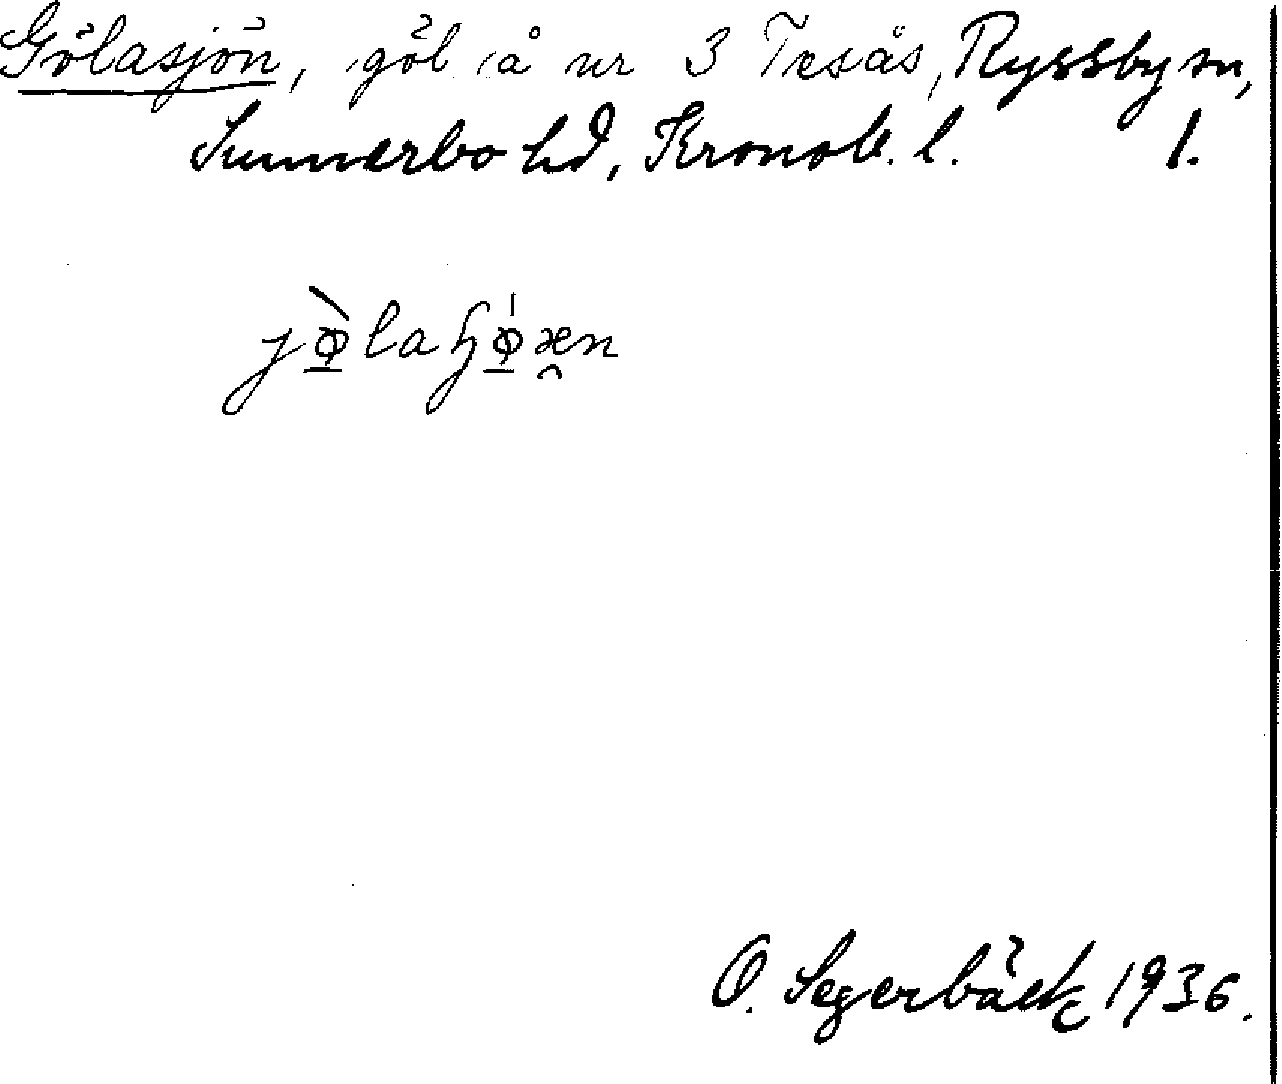 Gölasjön, göl å nr 3 Tesås, Ryssby sn,
Sunnerbo hd, Kronob. l. 1.
O. Segerbäck 1936.